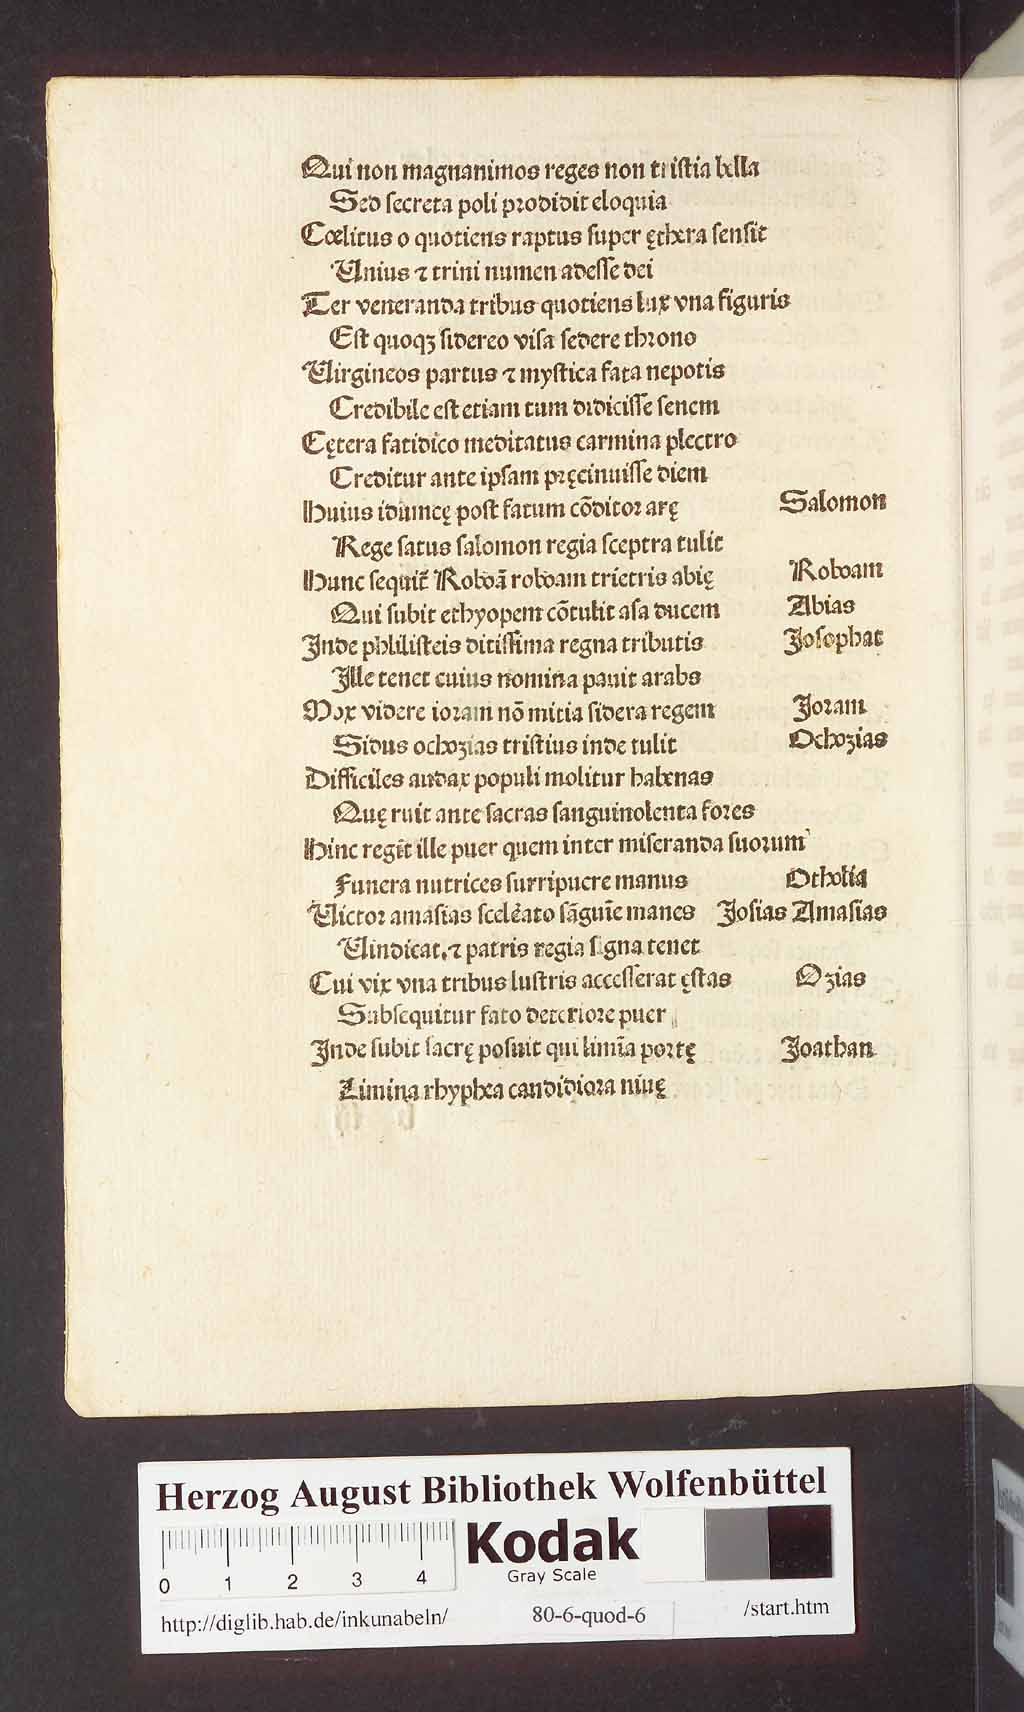 Qui non magnanimos reges non tristia bella
Sed secreta poli prodidit eloquia
Cœlitus o quotiens raptus super ęthera sensit
Unius ⁊ trini numen adesse dei
Ter veneranda tribus quotiens lux vna figuris
Est quoqꝫ sidereo visa sedere throno
Virgineos partus ⁊ mystica fata nepotis
Credibile est etiam tum didicisse senem
Cętera fatidico meditatus carmina plectro
Creditur ante ipsam pręcinuisse diem
Huius idumeę post fatum cōditor arę Salomon
Rege satus salomon regia sceptra tulit
Hunc sequit̄ Roboā roboam trietris abię Roboam
Qui subit ethyopem cōtulit asa ducem Abias
Inde philisteis ditissima regna tributis Josophat
Ille tenet cuius nomina pauit arabs
Mox videre ioram nō mitia sidera regem Joram
Sidus ochozias tristius inde tulit Ochozias
Difficiles audax populi molitur habenas
Quę ruit ante sacras sanguinolenta fores
Hinc regēt ille puer quem inter miseranda suorum
Funera nutrices surripuere manus Otholia
Victor amasias scelēato sāguīe manes Josias Amasias
Vindicat, ⁊ patris regia signa tenet
Cui vix vna tribus lustris accesserat ęstas Ozias
Subsequitur fato deteriore puer
Inde subit sacrę posuit qui limīa portę Joathan
Limina rhyphea candidiora niuę
Herzog August Bibliothek Wolfenbüttel
Kodak
Gray Scale
0 1 2 3 4
http://diglib.hab.de/inkunabeln/ 80-6-quod-6 /start.htm